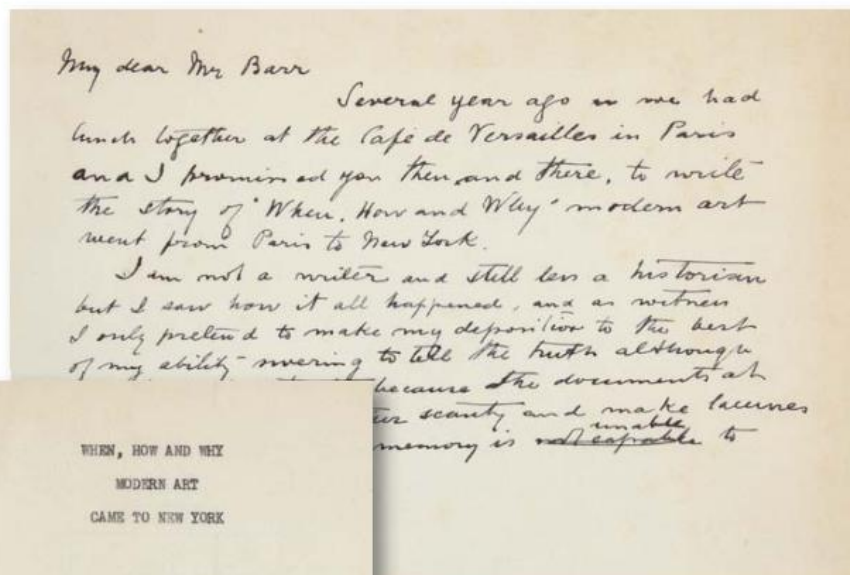 My dear Mr Barr
Several year ago we had
lunch together at the Café de Versailles in Paris
and I promissed you then and there, to write
the story of "When, How and Why" modern art
went from Paris to New York.
I am not a writer and still less a historian
but I saw how it all happened, and as witness
I only pretend to make my deposition to the best
of my ability swering to tell the truth although
because the documents at
scanty and make lacunes
memory is not capable unable to
WHEN, HOW AND WHY
MODERN ART
CAME TO NEW YORK